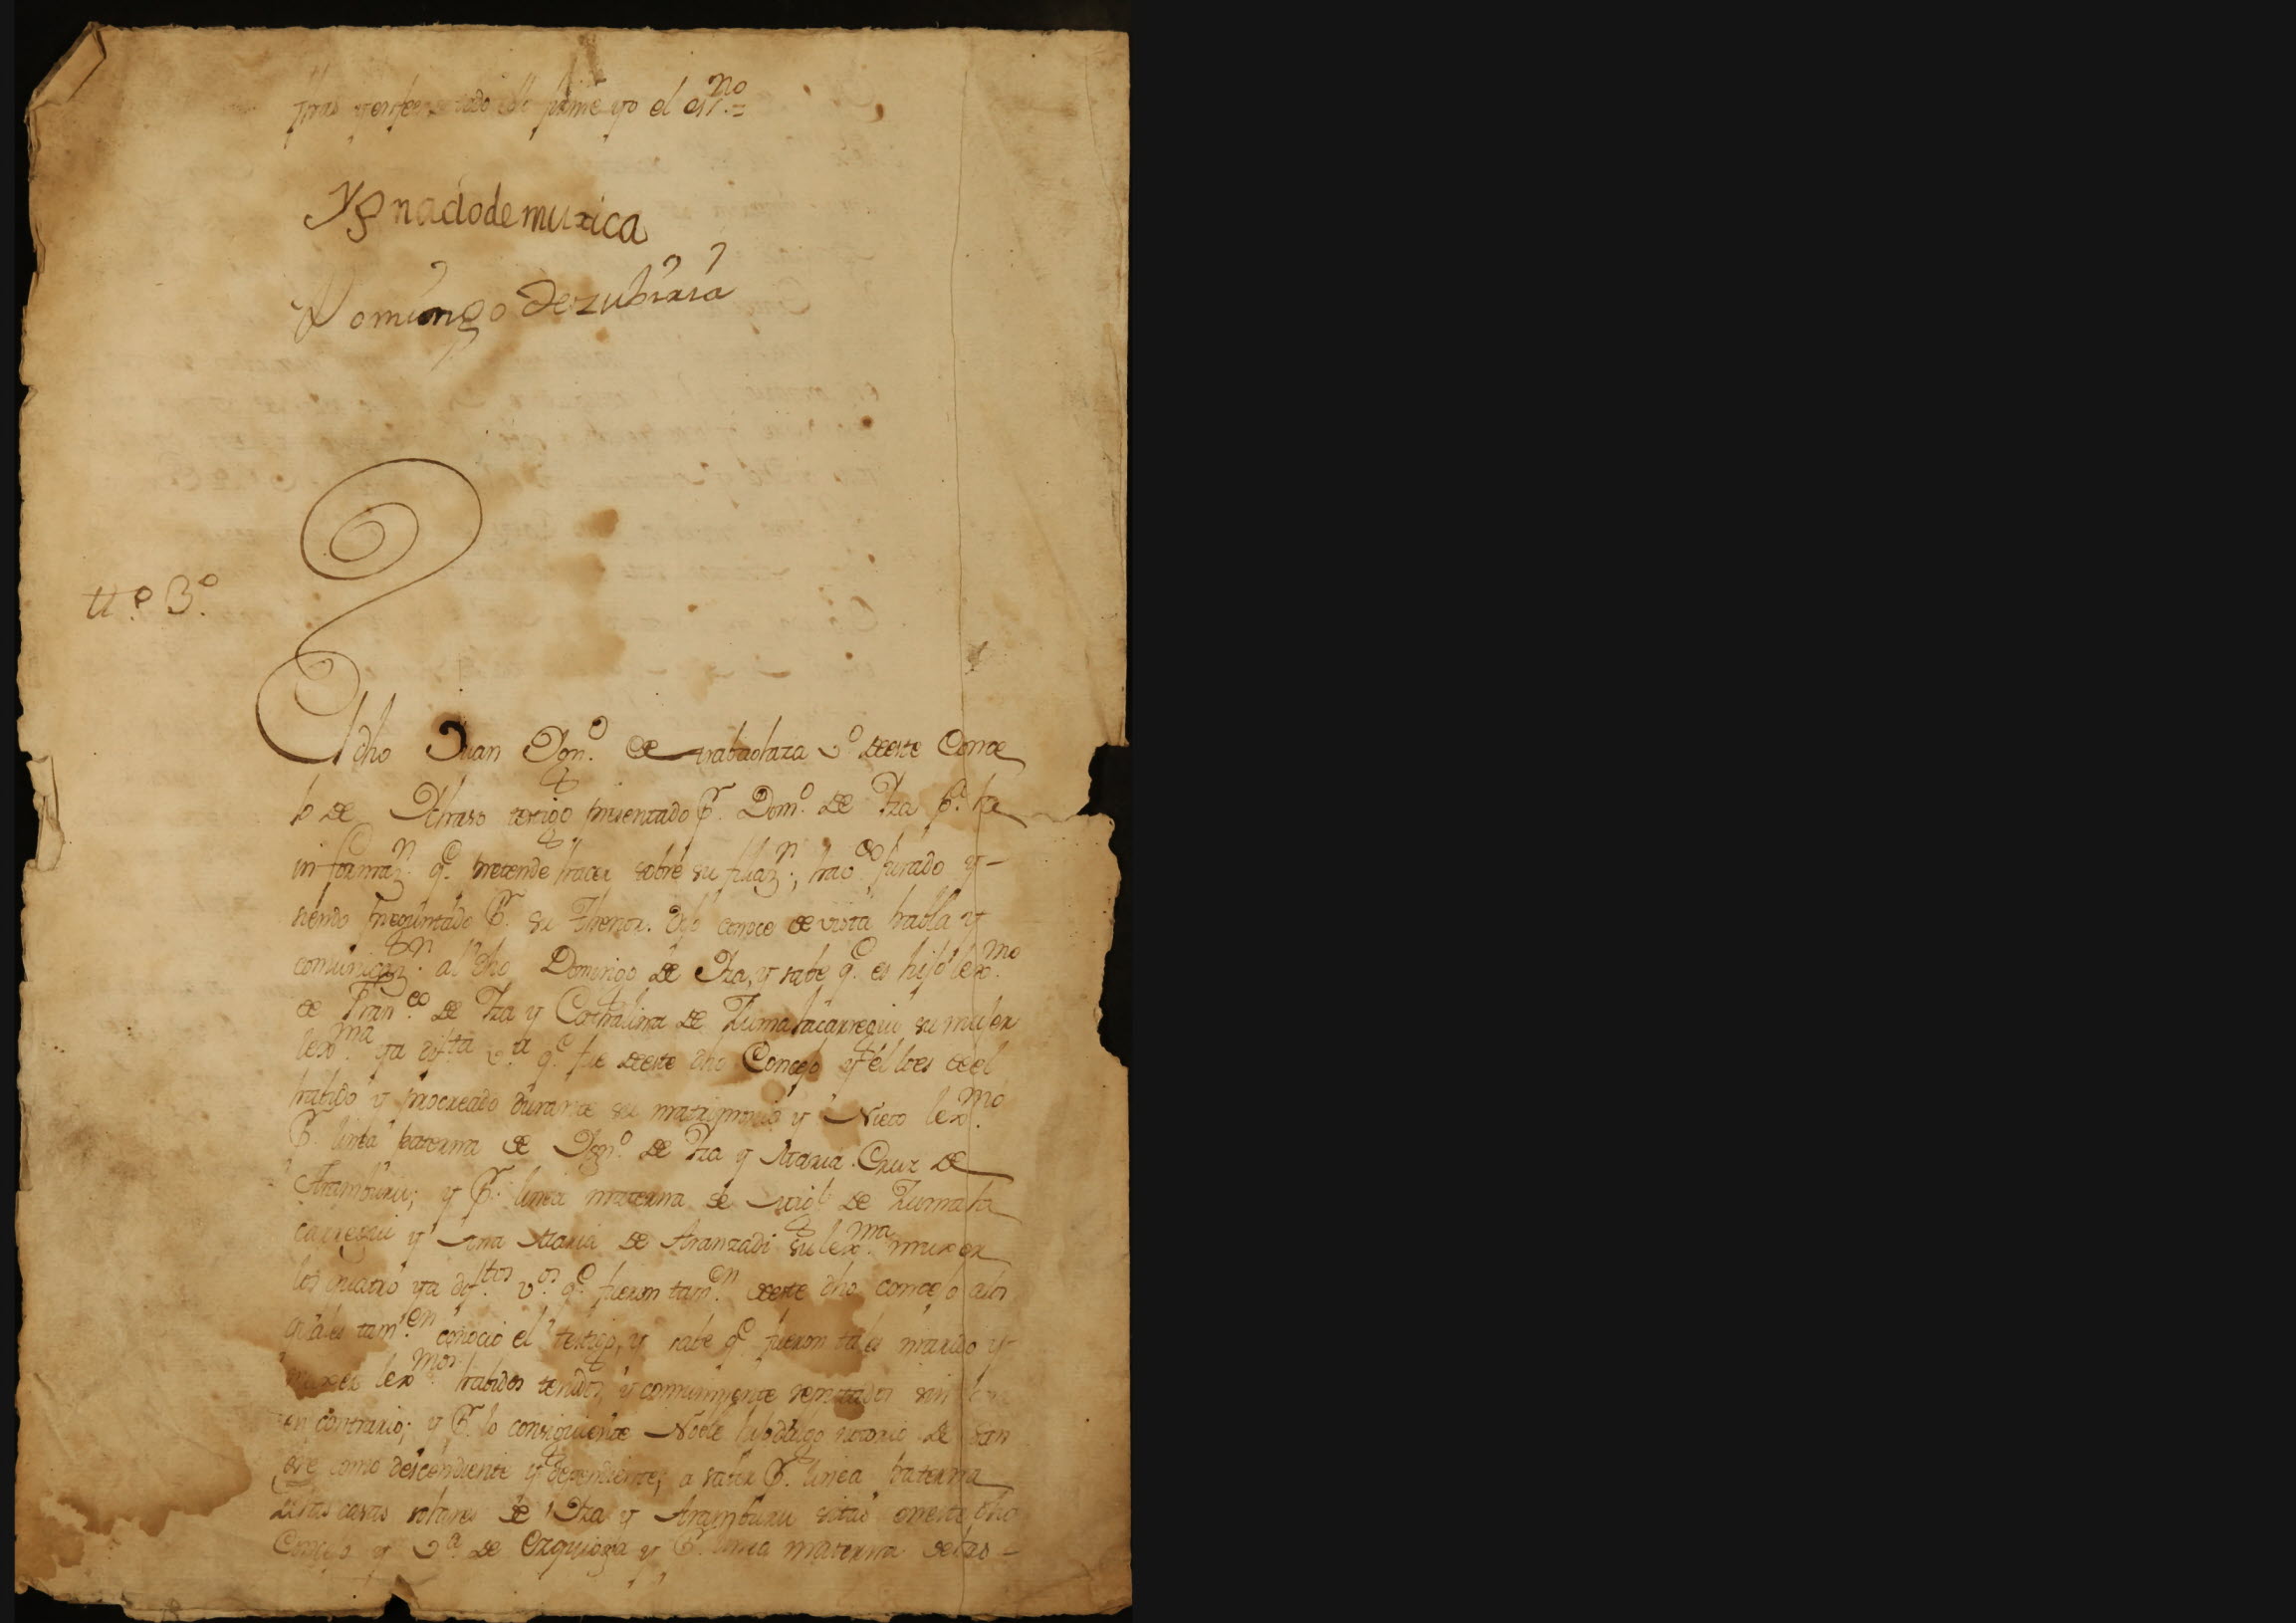 yo el es.no =
Ygnacio de muxica
Domingo de zubiria
tt.o 3.o
El dho Juan Dgn.o de v.o de este Conce
jo de testigo presentado p.r Dom.o de Iza p.a la
informaz.n q.e pretende hacer sobre su filiaz.n, hav.do jurado y
siendo preguntado p.r su thenor. Dijo conoce de vista habla y
comunicaz.n al dho Domingo de Iza, y sabe q.e es hijo lex.mo
de Fran.co de Iza y Cathalina de Zumalacarregui su mujer
lex.ma ya dif.ta v.a q.e fue de este dho Concejo y él lo es de el
habido y procreado durante su matrimonio y Nieto lex.mo
p.r linea paterna de Dgn.o de Iza y Maria Cruz de
Aramburu; y p.r linea materna de Mig.l de Zumala
carregui y Ana Maria de Aranzadi su lex.ma muxer
los quatro ya dif.tos v.os q.e fueron tam.en de este dho concejo a los
quales tam.en conocio el testigo, y sabe q.e fueron tales marido y
muxer lex.mos habidos tenidos, y comunmente reputados sin
en contrario; y p.r lo consiguiente Noble hijodalgo notorio de san
gre como descendiente y dependiente; a saber p.r linea paterna
de las casas solares de Iza y Aramburu sitas en este dho
Concejo y v.a de Ezquioga y p.r linea materna de las